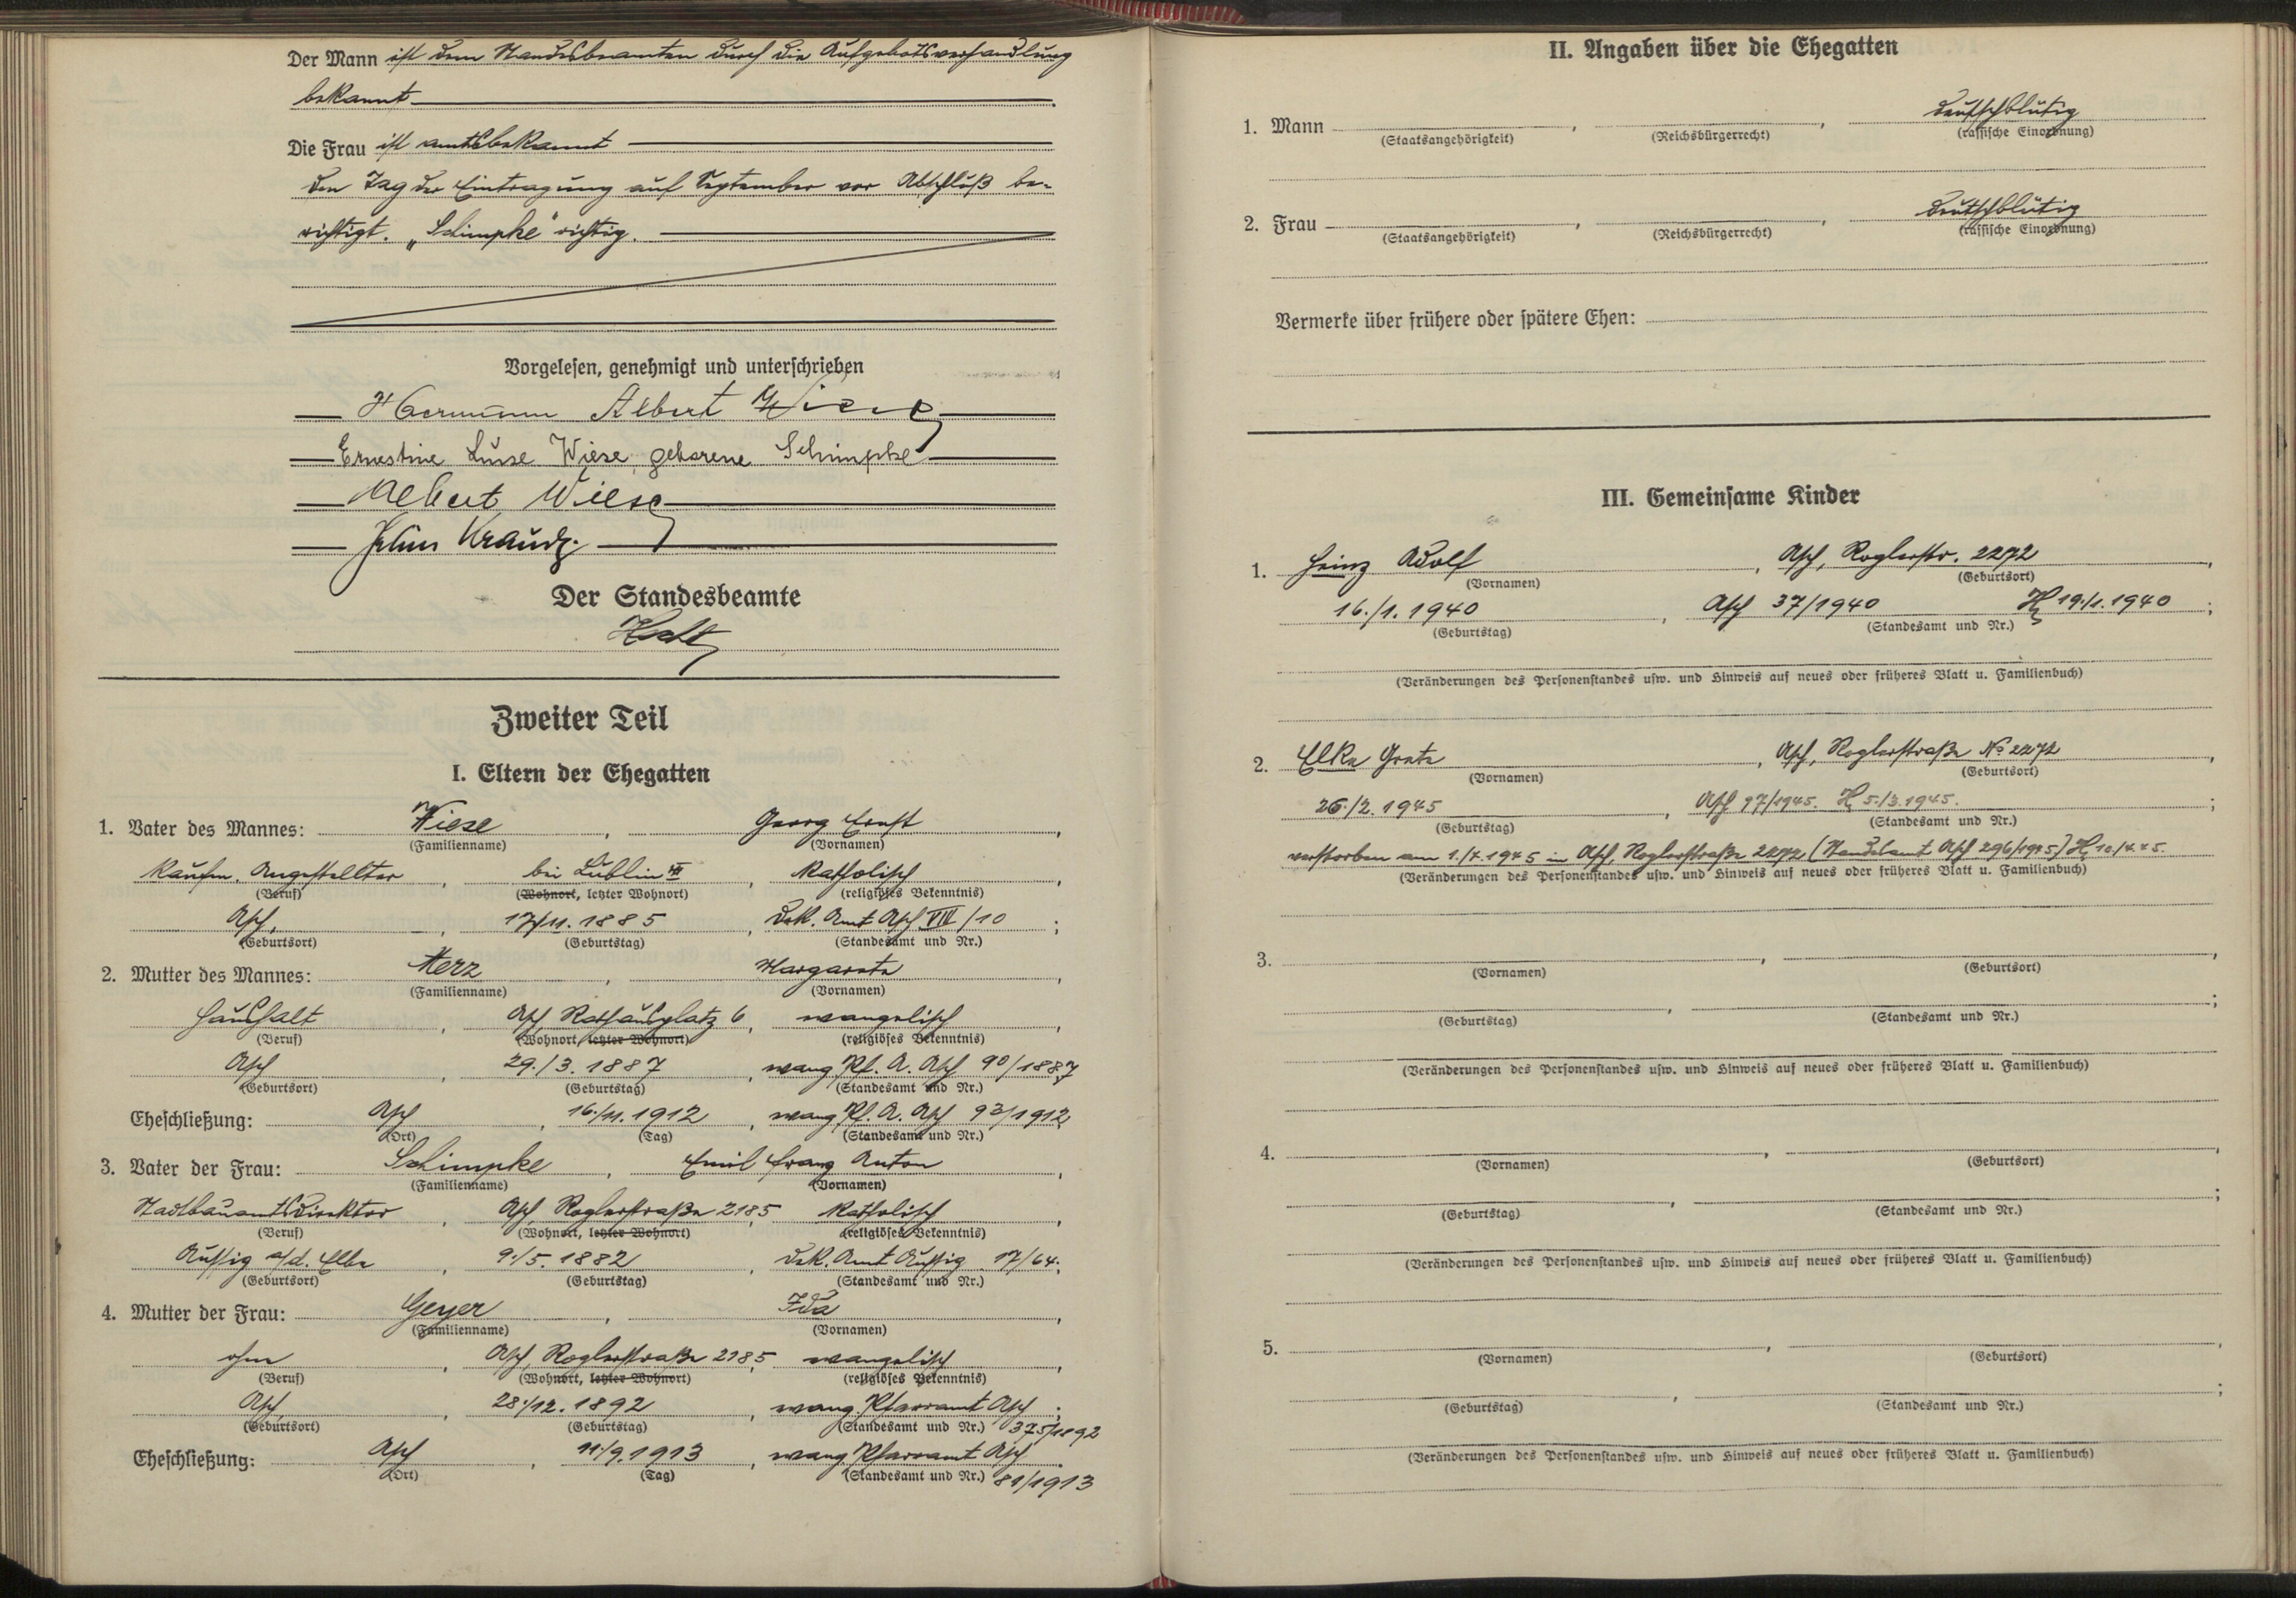 Der Mann ist dem Standesbeamten durch die Aufgebotsverhandlung
bekannt
Die Frau ist amtsbekannt
den Tag der Eintragung auf September vor Abschluß be-
richtigt. „Schimpke" richtig.
Vorgelesen, genehmigt und unterschrieben
Hermann Albert Wiese
Ernestine Luise Wiese geborene Schimpke
Albert Wiese
Der Standesbeamte
Zweiter Teil
I. Eltern der Ehegatten
1. Vater des Mannes: Wiese, Georg Ernst,
(Familienname) (Vornamen)
kaufm. Angestellter, bei Lublin, katholisch,
(Beruf) (Wohnort, letzter Wohnort) (religiöses Bekenntnis)
Asch, 17/11. 1885, Dek. Amt Asch VIII/10;
(Geburtsort) (Geburtstag) (Standesamt und Nr.)
2. Mutter des Mannes: Merz, Margarete,
(Familienname) (Vornamen)
Haushalt, Asch, Rathausplatz 6, evangelisch,
(Beruf) (Wohnort, letzter Wohnort) (religiöses Bekenntnis)
Asch, 29./3. 1887, evang. Pf. A. Asch 90/1887
(Geburtsort) (Geburtstag) (Standesamt und Nr.)
Eheschließung: Asch, 16./11. 1912, evang. Pf. A. Asch 93/1912
(Ort) (Tag) (Standesamt und Nr.)
3. Vater der Frau: Schimpke, Emil Franz Anton,
(Familienname) (Vornamen)
Stadtbauamtsdirektor, Asch, Roglerstraße 2185, katholisch,
(Beruf) (Wohnort, letzter Wohnort) (religiöses Bekenntnis)
Aussig a/d. Elbe, 9./5. 1882, Dek. Amt Aussig 17/64;
(Geburtsort) (Geburtstag) (Standesamt und Nr.)
4. Mutter der Frau: Geyer, Ida,
(Familienname) (Vornamen)
ohne, Asch, Roglerstraße 2185, evangelisch,
(Beruf) (Wohnort, letzter Wohnort) (religiöses Bekenntnis)
Asch, 28./12. 1892, evang. Pfarramt Asch;
(Geburtsort) (Geburtstag) (Standesamt und Nr.) 375/1892
Eheschließung: Asch, 11./9. 1913, evang. Pfarramt Asch
(Ort) (Tag) (Standesamt und Nr.) 81/1913
II. Angaben über die Ehegatten
1. Mann, , deutschblütig
(Staatsangehörigkeit) (Reichsbürgerrecht) (rassische Einordnung)
2. Frau, , deutschblütig
(Staatsangehörigkeit) (Reichsbürgerrecht) (rassische Einordnung)
Vermerke über frühere oder spätere Ehen:
III. Gemeinsame Kinder
1. Heinz Adolf, Asch, Roglerstr. 2272,
(Vornamen) (Geburtsort)
16./1. 1940, Asch 37/1940 19./1. 1940;
(Geburtstag) (Standesamt und Nr.)
(Veränderungen des Personenstandes usw. und Hinweis auf neues oder früheres Blatt u. Familienbuch)
2. Elke Grete, Asch, Roglerstraße No 2272,
(Vornamen) (Geburtsort)
26./2. 1945, Asch 97/1945. 5./3. 1945.;
(Geburtstag) (Standesamt und Nr.)
verstorben am 1./4. 1945 in Asch, Roglerstraße 2272 (Standesamt Asch 296/1945) 10./4. 45.
(Veränderungen des Personenstandes usw. und Hinweis auf neues oder früheres Blatt u. Familienbuch)
3. , ,
(Vornamen) (Geburtsort)
, ;
(Geburtstag) (Standesamt und Nr.)
(Veränderungen des Personenstandes usw. und Hinweis auf neues oder früheres Blatt u. Familienbuch)
4. , ,
(Vornamen) (Geburtsort)
, ;
(Geburtstag) (Standesamt und Nr.)
(Veränderungen des Personenstandes usw. und Hinweis auf neues oder früheres Blatt u. Familienbuch)
5. , ,
(Vornamen) (Geburtsort)
, ;
(Geburtstag) (Standesamt und Nr.)
(Veränderungen des Personenstandes usw. und Hinweis auf neues oder früheres Blatt u. Familienbuch)